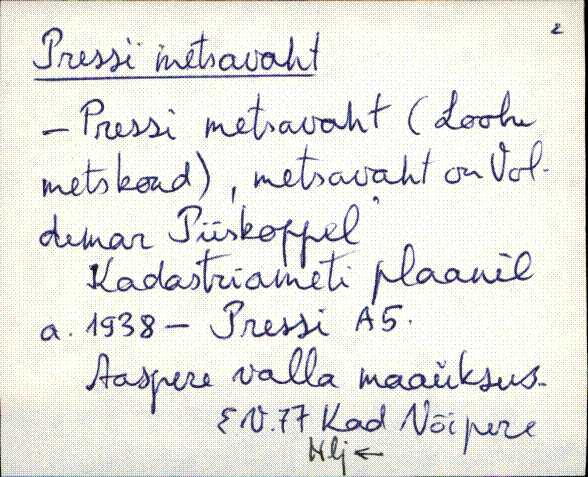 2
Pressi metsavaht
- Pressi metsavaht (Loobu
metskond), metsavaht on Vol-
demar Piiskoppel"
Kadastriameti plaanil
a. 1938 - Pressi A5.
Aaspere valla maaüksus.
EV.77 Kad Võipere
Hlj ←